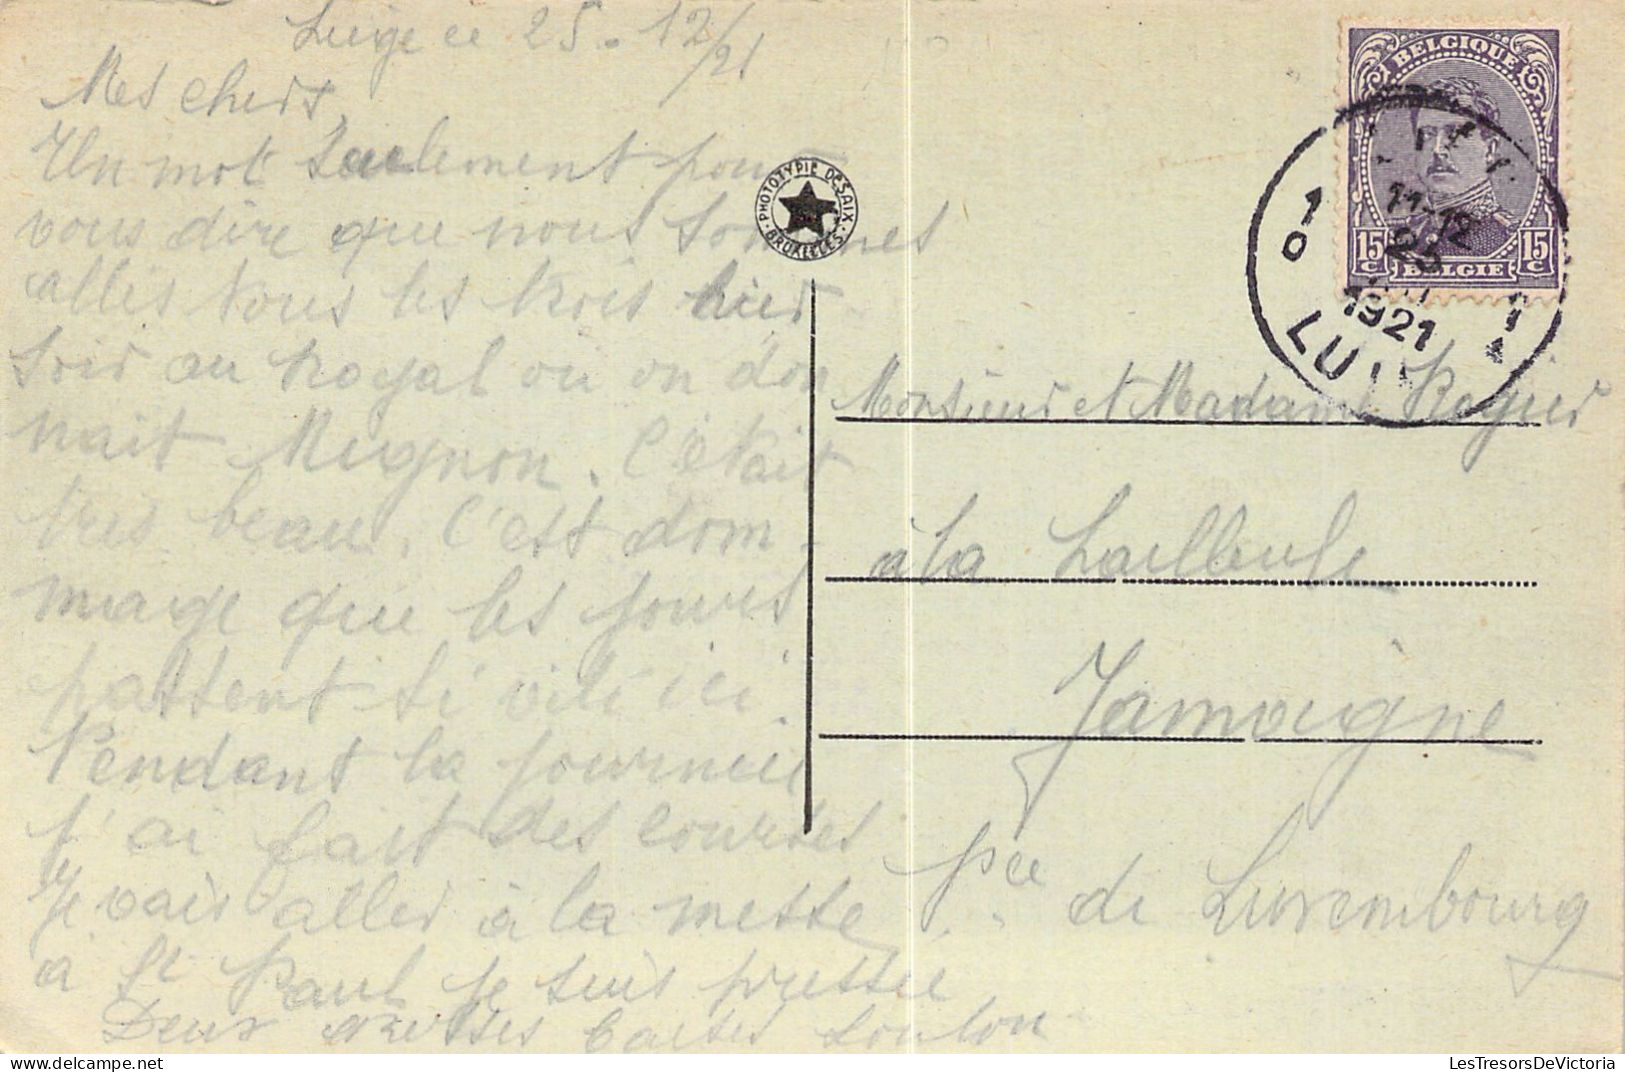 Liège ce 25-12/21
Mes chers,
Un mot seulement pour
vous dire que nous sommes
allés tous les trois hier
soir au Royal ou on don
nait Mignon. C'était
très beau. C'est dom-
mage que les jours
passent si vite ici.
Pendant la journée
j'ai fait des courses
Je vais aller à la messe
à St Paul je suis pressée
Deux grosses baises Loulou
PHOTOTYPIE DESAIX
BRUXELLES
BELGIQUE
15 C
BELGIE
15 C
11-12
25
1921
Monsieur et Madame Rogier
à la
Jamoigne
Pce de Luxembourg
LesTresorsDeVictoria